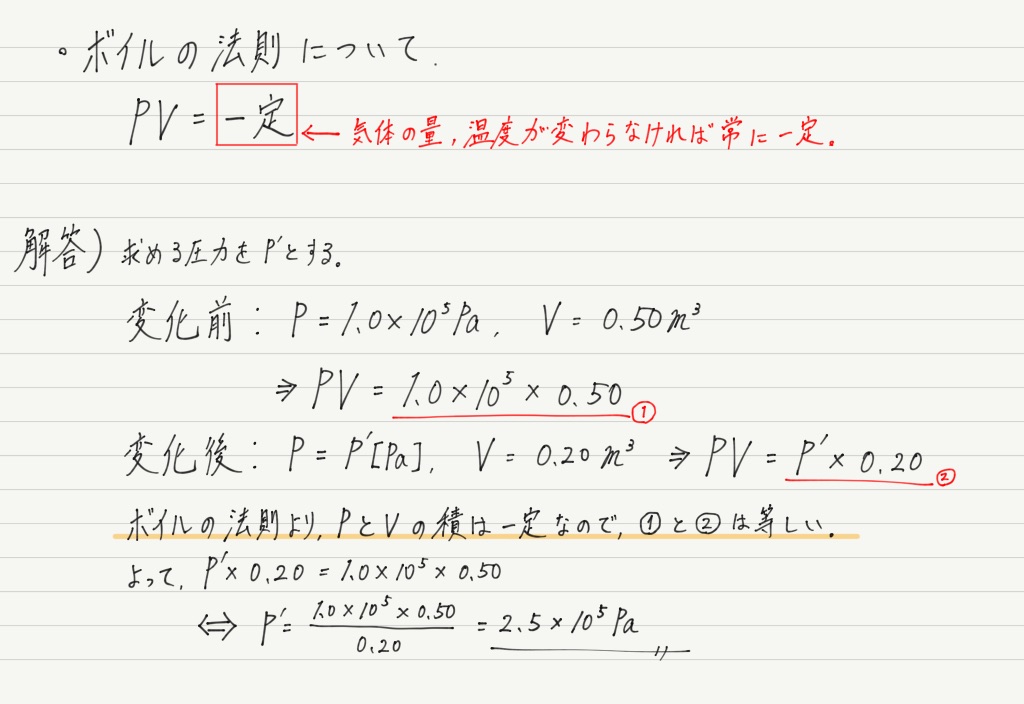 。ボイルの法則について.
PV = 一定 ← 気体の量,温度が変わらなければ常に一定。
解答) 求める圧力をP'とする。
変化前: P = 1.0×10⁵Pa, V = 0.50m³
⇒ PV = 1.0×10⁵ × 0.50 ①
変化後: P = P'[Pa], V = 0.20m³ ⇒ PV = P'× 0.20 ②
ボイルの法則より, PとVの積は一定なので, ①と②は等しい.
よって, P'× 0.20 = 1.0×10⁵ × 0.50
⇔ P' = 1.0×10⁵ × 0.50 / 0.20 = 2.5×10⁵Pa